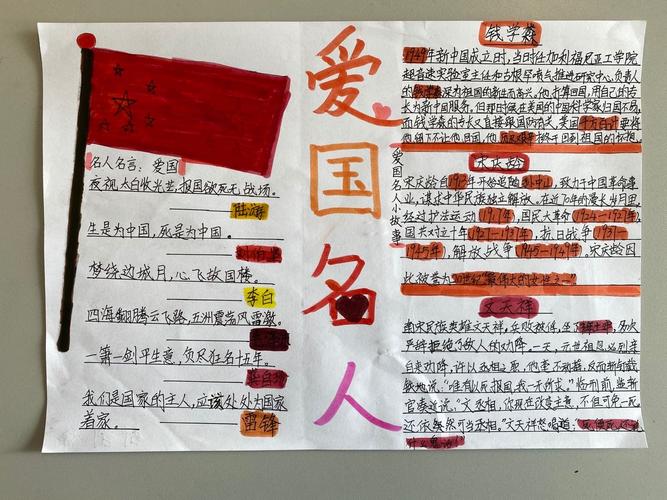 名人名言:爱国
夜视太白收光芒,报国欲死无战场。
陆游
生是为中国,死是为中国。
梦绕边城月,心飞故国楼。
李白
四海翻腾云飞路,五洲震荡风雷激。
一箫一剑平生意,负尽狂名十五年。
龚自珍
我们是国家的主人,应该处处为国家
着家。
雷锋
爱国名人
爱国名人小故事
钱学森
1949年新中国成立时,当时任加利福尼亚工学院
超音速实验室主任和古根罕喷气推进研究中心负责人
的钱学森深为祖国的新生而高兴。他打算回国,用自己的专
长为新中国服务,但那时候在美国的中国科学家归国不易,
而钱学森的专长又直接跟国防有关,美国千方百计要将
他留下不让他回国,他
终于回到祖国的怀抱。
宋庆龄
宋庆龄自1913年开始追随孙中山,致力于中国革命事
业,谋求中华民族独立解放。在近70年的漫长岁月里,
经过护法运动(1917年),国民大革命(1924—1927年),
国共对立十年(1927—1937年),抗日战争(1931—
1945年),解放战争(1945—1949年)。宋庆龄因
此被誉为20世纪“最伟大的女性之一”
文天祥
南宋民族英雄文天祥,兵败被俘,坐了
三年土牢,多次
严辞拒绝了敌人的劝降。一天,元世祖忽必烈亲
自来劝降,许以丞相之职,他毫不动摇,反而斩钉截
铁地说:“唯有以死报国,我一无所求。”临刑前,监斩
官凑近说:“文丞相,你现在改变主意,不但可免一死,
还依然可当丞相。”文天祥怒喝道: